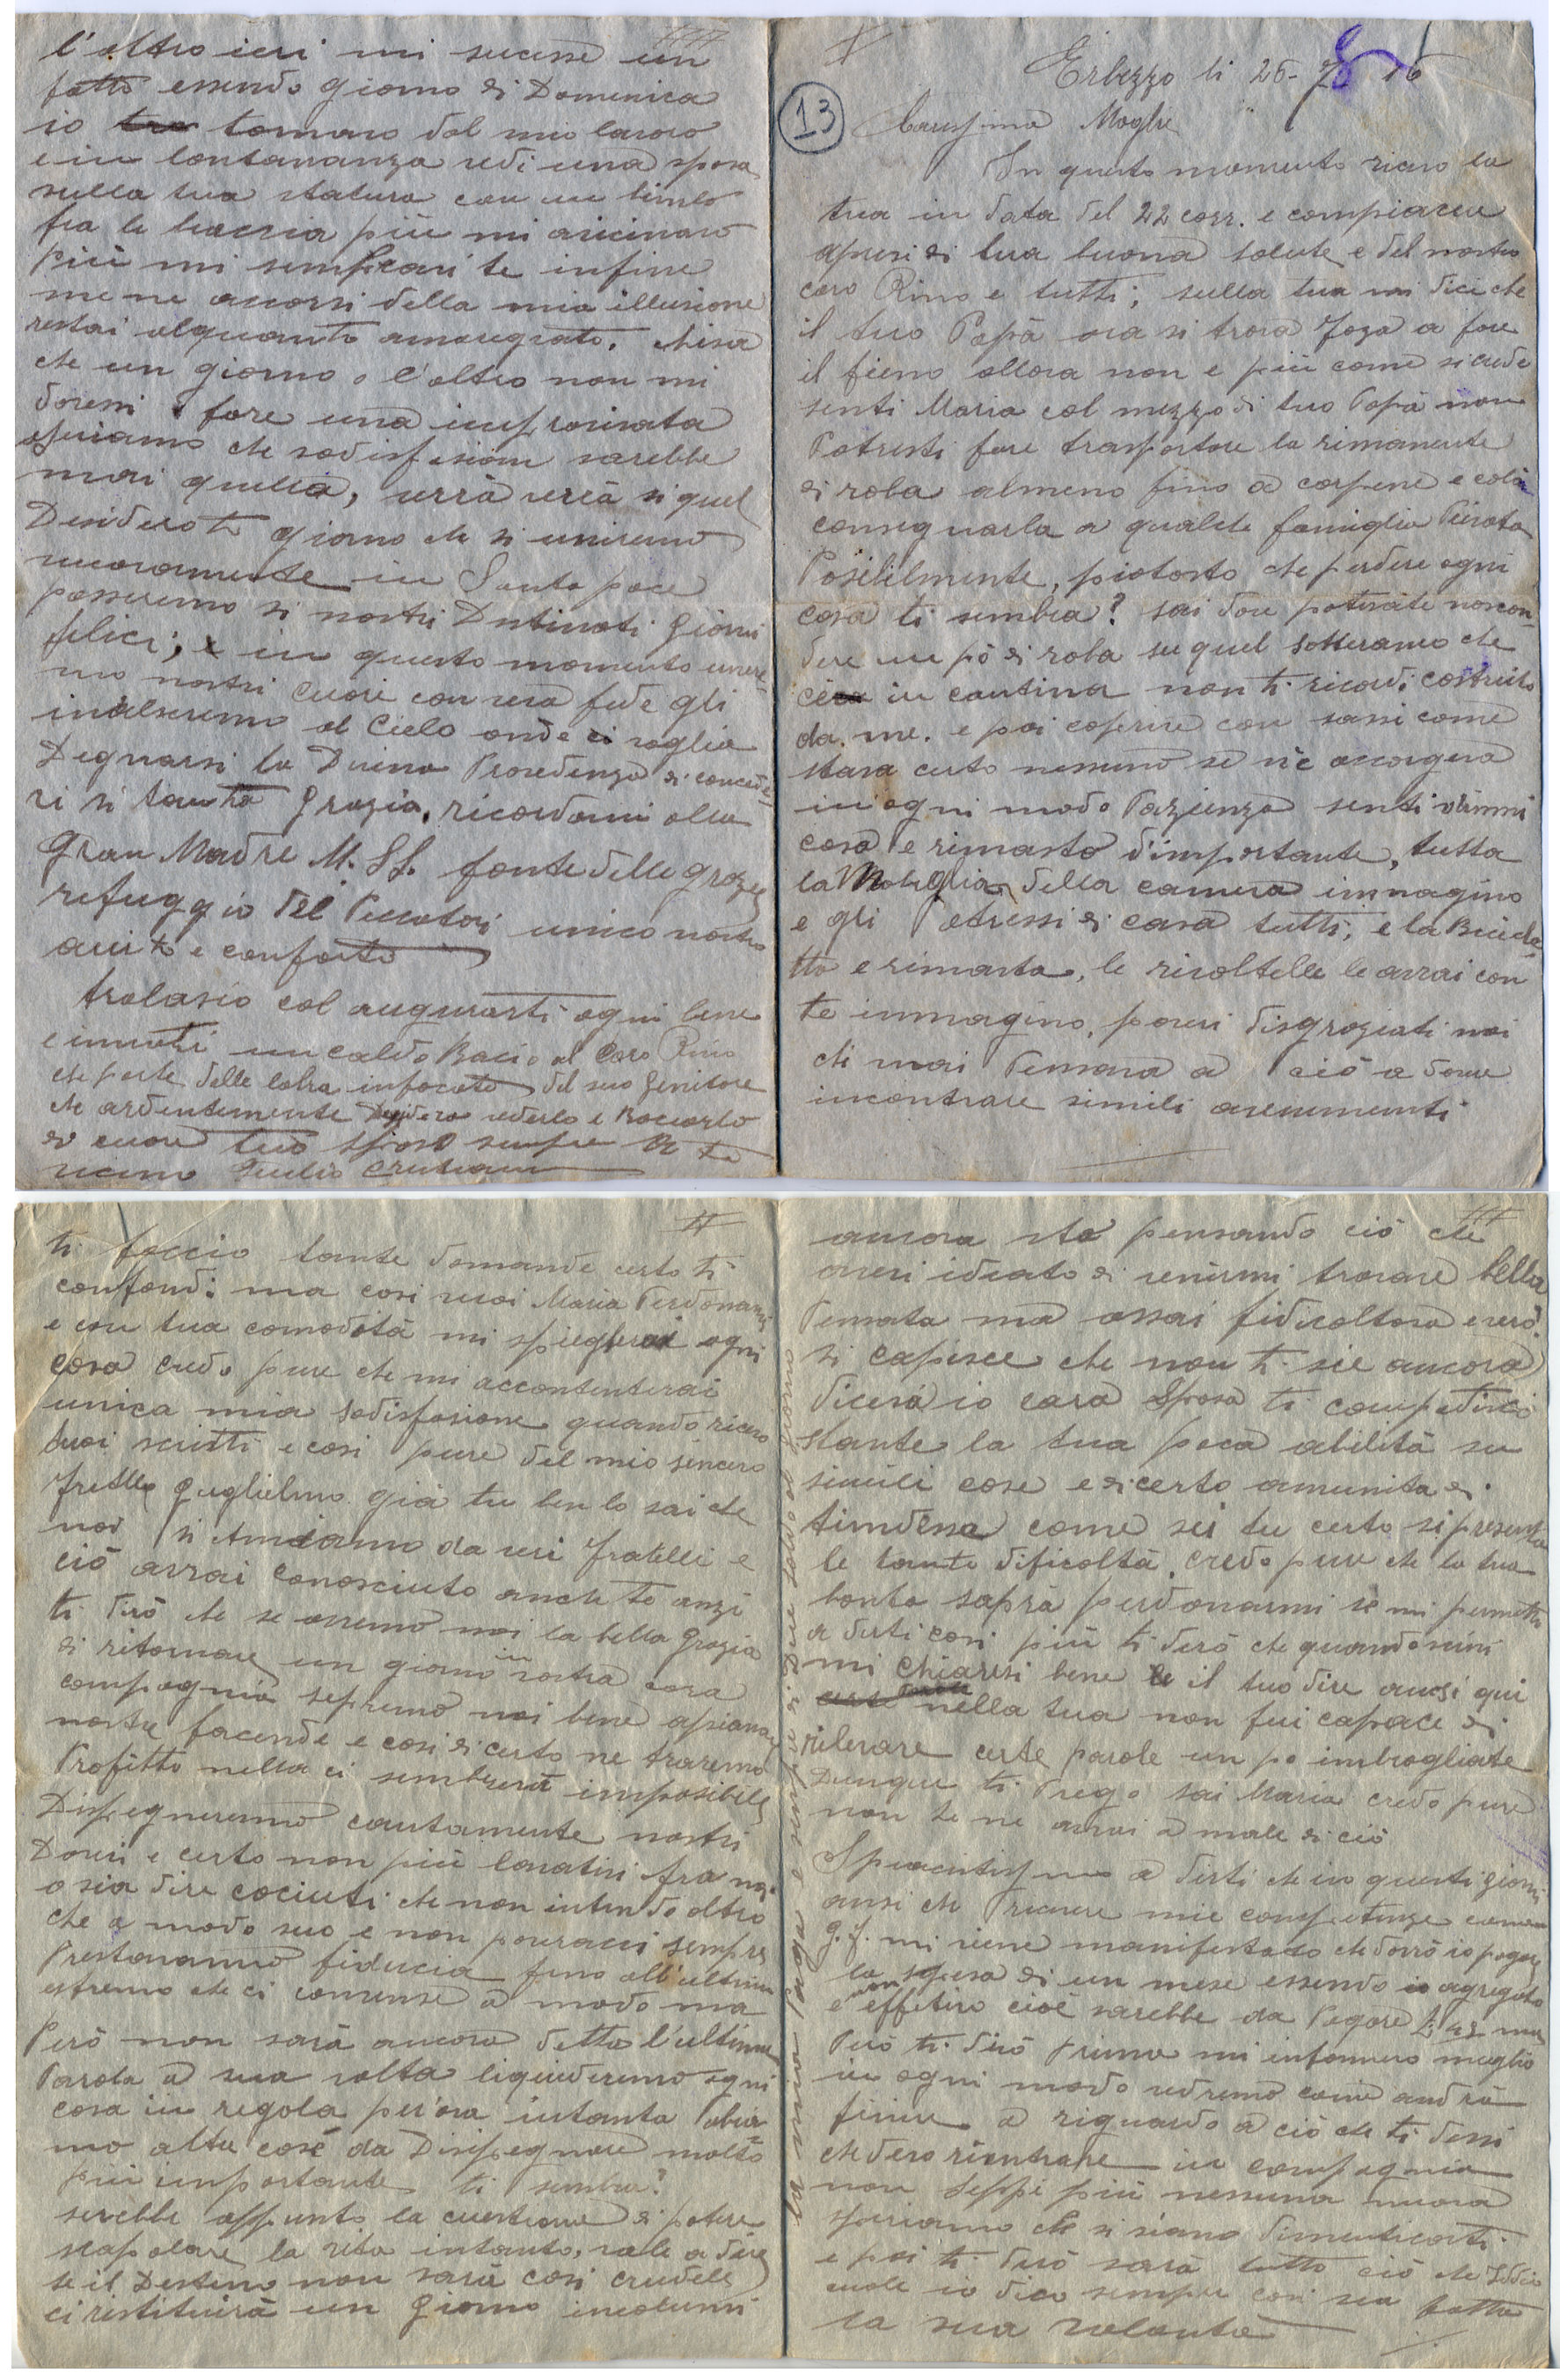 Erbezzo li 26-8 16
13
Carissima Moglie
In questo momento ricevo la
tua in data del 22 corr. e compiacen
apresi di tua buona salute e del nostro
caro Rino e tutti; sulla tua mi dici che
il tuo Papà ora si trova Foza a fare
il fieno allora non e più come si crede
senti Maria col mezzo di tuo Papà non
Potresti fare trasportare la rimanente
di roba almeno fino a carpenè e colà
consegnarla a qualche famiglia
Posibilmente, piotosto che perdere ogni
cosa ti sembra? sai dove potreste noscon-
dere un pò di roba su quel sotteraneo che
in cantina non ti ricordi costruito
da me. e poi coperire con sassi come
stava certo nessuno se n'è accorgera
in ogni modo Pazienza senti dimmi
cosa e rimasto d'importante, tutta
la Mobiglia della camera immagino
e gli Atressi di casa tutti, e la Bicicle-
tta e rimasta, le rivoltelle le avrai con
te immagino, poveri disgraziati noi
chi mai Pensava a ciò a dover
incontrare simili avenimenti
II
ti faccio tante domande certo ti
confondi ma cosi vuoi Maria Perdonami
e con tua comodità mi spiegherai ogni
cosa credo pure che mi accontenterai
unica mia sodisfasione quando ricevo
tuoi scritti e cosi pure del mio sincero
fratello Guglielmo già tu ben lo sai che
noi si Amiamo da veri fratelli e
ciò avrai conosciuto anche te anzi
ti dirò che se avremo noi la bella Grazia
di ritornare un giorno in vostra cara
compagnia sepremo noi bene apianare
nostre facende e cosi di certo ne traremo
Profitto nella ci sembrerà imposibile
Dispegneremo cautamente nostri
Doveri e certo non più fra noi
o sia dire cociuti che non intendo altro
che a modo suo e non pouracci sempre
Prestavamo fiducia fino all'ultimo
estremo che ci convense a modo ma
Però non sarà ancora detta l'ultima
Parola a sua volta liquideremo ogni
cosa in regola per'ora intanto abia-
mo altre cose da Disipegnare molto
più importante ti sembra?
serebbe appunto la cuestione di potere
scapolare la vita intanto, vale a dire
se il Destino non sarà cosi crudele
ci restituirà un giorno incolumi
III
ancora sto pensando ciò che
avevi ideato di venirmi trovare bella
Pensata ma assai fidicoltosa e vero?
si capisce che non ti sie ancora
io cara Sposa ti compatisco
stante la tua poca abilità su
simili cose e di certo amunita di
timidessa come sei tu certo si presenta
le tante dificoltà. credo pure che la tua
bonta saprà perdonarmi se mi permetto
a dirti cosi più ti dirò che quando scrivi
mi chiaresi bene il tuo dire ansi qui
nella tua non fui capace di
rilevare certe parole un po imbrogliate
Dunque ti Prego sai Maria credo pure
non te ne avrai a male di ciò
Spiacentissimo a dirti che in questi giorni
ansi che Ricevere mie competenze come
G. F. mi viene manifestato che dovrò io pagare
la spesa di un mese essendo io agregato
e non effetivo cioè sarebbe da Pegare L. 42 ma
Però ti dirò Prima mi informero meglio
in ogni modo vedremo come andrà
finire a riguardo a ciò che ti dissi
che devo rientrare in compagnia
non seppi più nessuna nuova
speriamo che si siano dimenticati
e poi ti dirò sarà tutto ciò che Iddio
vuole io dico sempre cosi sia fatta
la sua volonta
la mia Paga e sempre di Due soldi al giorno
IIII
l'altro ieri mi sucesse un
fatto essendo giorno di Domenica
io tornavo dal mio lavoro
e in lontananza vedi una sposa
sulla tua statura con un bimbo
fra le braccia più mi avicinavo
più mi sempravi te infine
me ne accorsi della mia illusione
restai alquanto amaregiato. chisa
che un giorno o l'altro non mi
dovessi fare una improvisata
speriamo che sodisfasione sarebbe
mai quella, verrà verrà si quel
Desiderato giorno che si uniremo
nuovamente in Santa pace
passeremo si nostri Destinati Giorni
felici; e in questo momento unire-
mo nostri cuori con vera fede gli
inalseremo al Cielo onde ci voglia
Degnarsi la Divina Provedenza di concede-
ri si tanta Grazia. ricordami alla
Gran Madre M. SS. fonte delle Grazie
refuggio dei Peccatori unico nostro
auito e conforto
tralasio col augurarti ogni bene
e inviati un caldo Bacio al Caro Rino
che parte delle labra infocate del suo Genitore
che ardentemente Desidera vederlo e Baciarlo
di cuore tuo sposo sempre a te
vicino Giulio